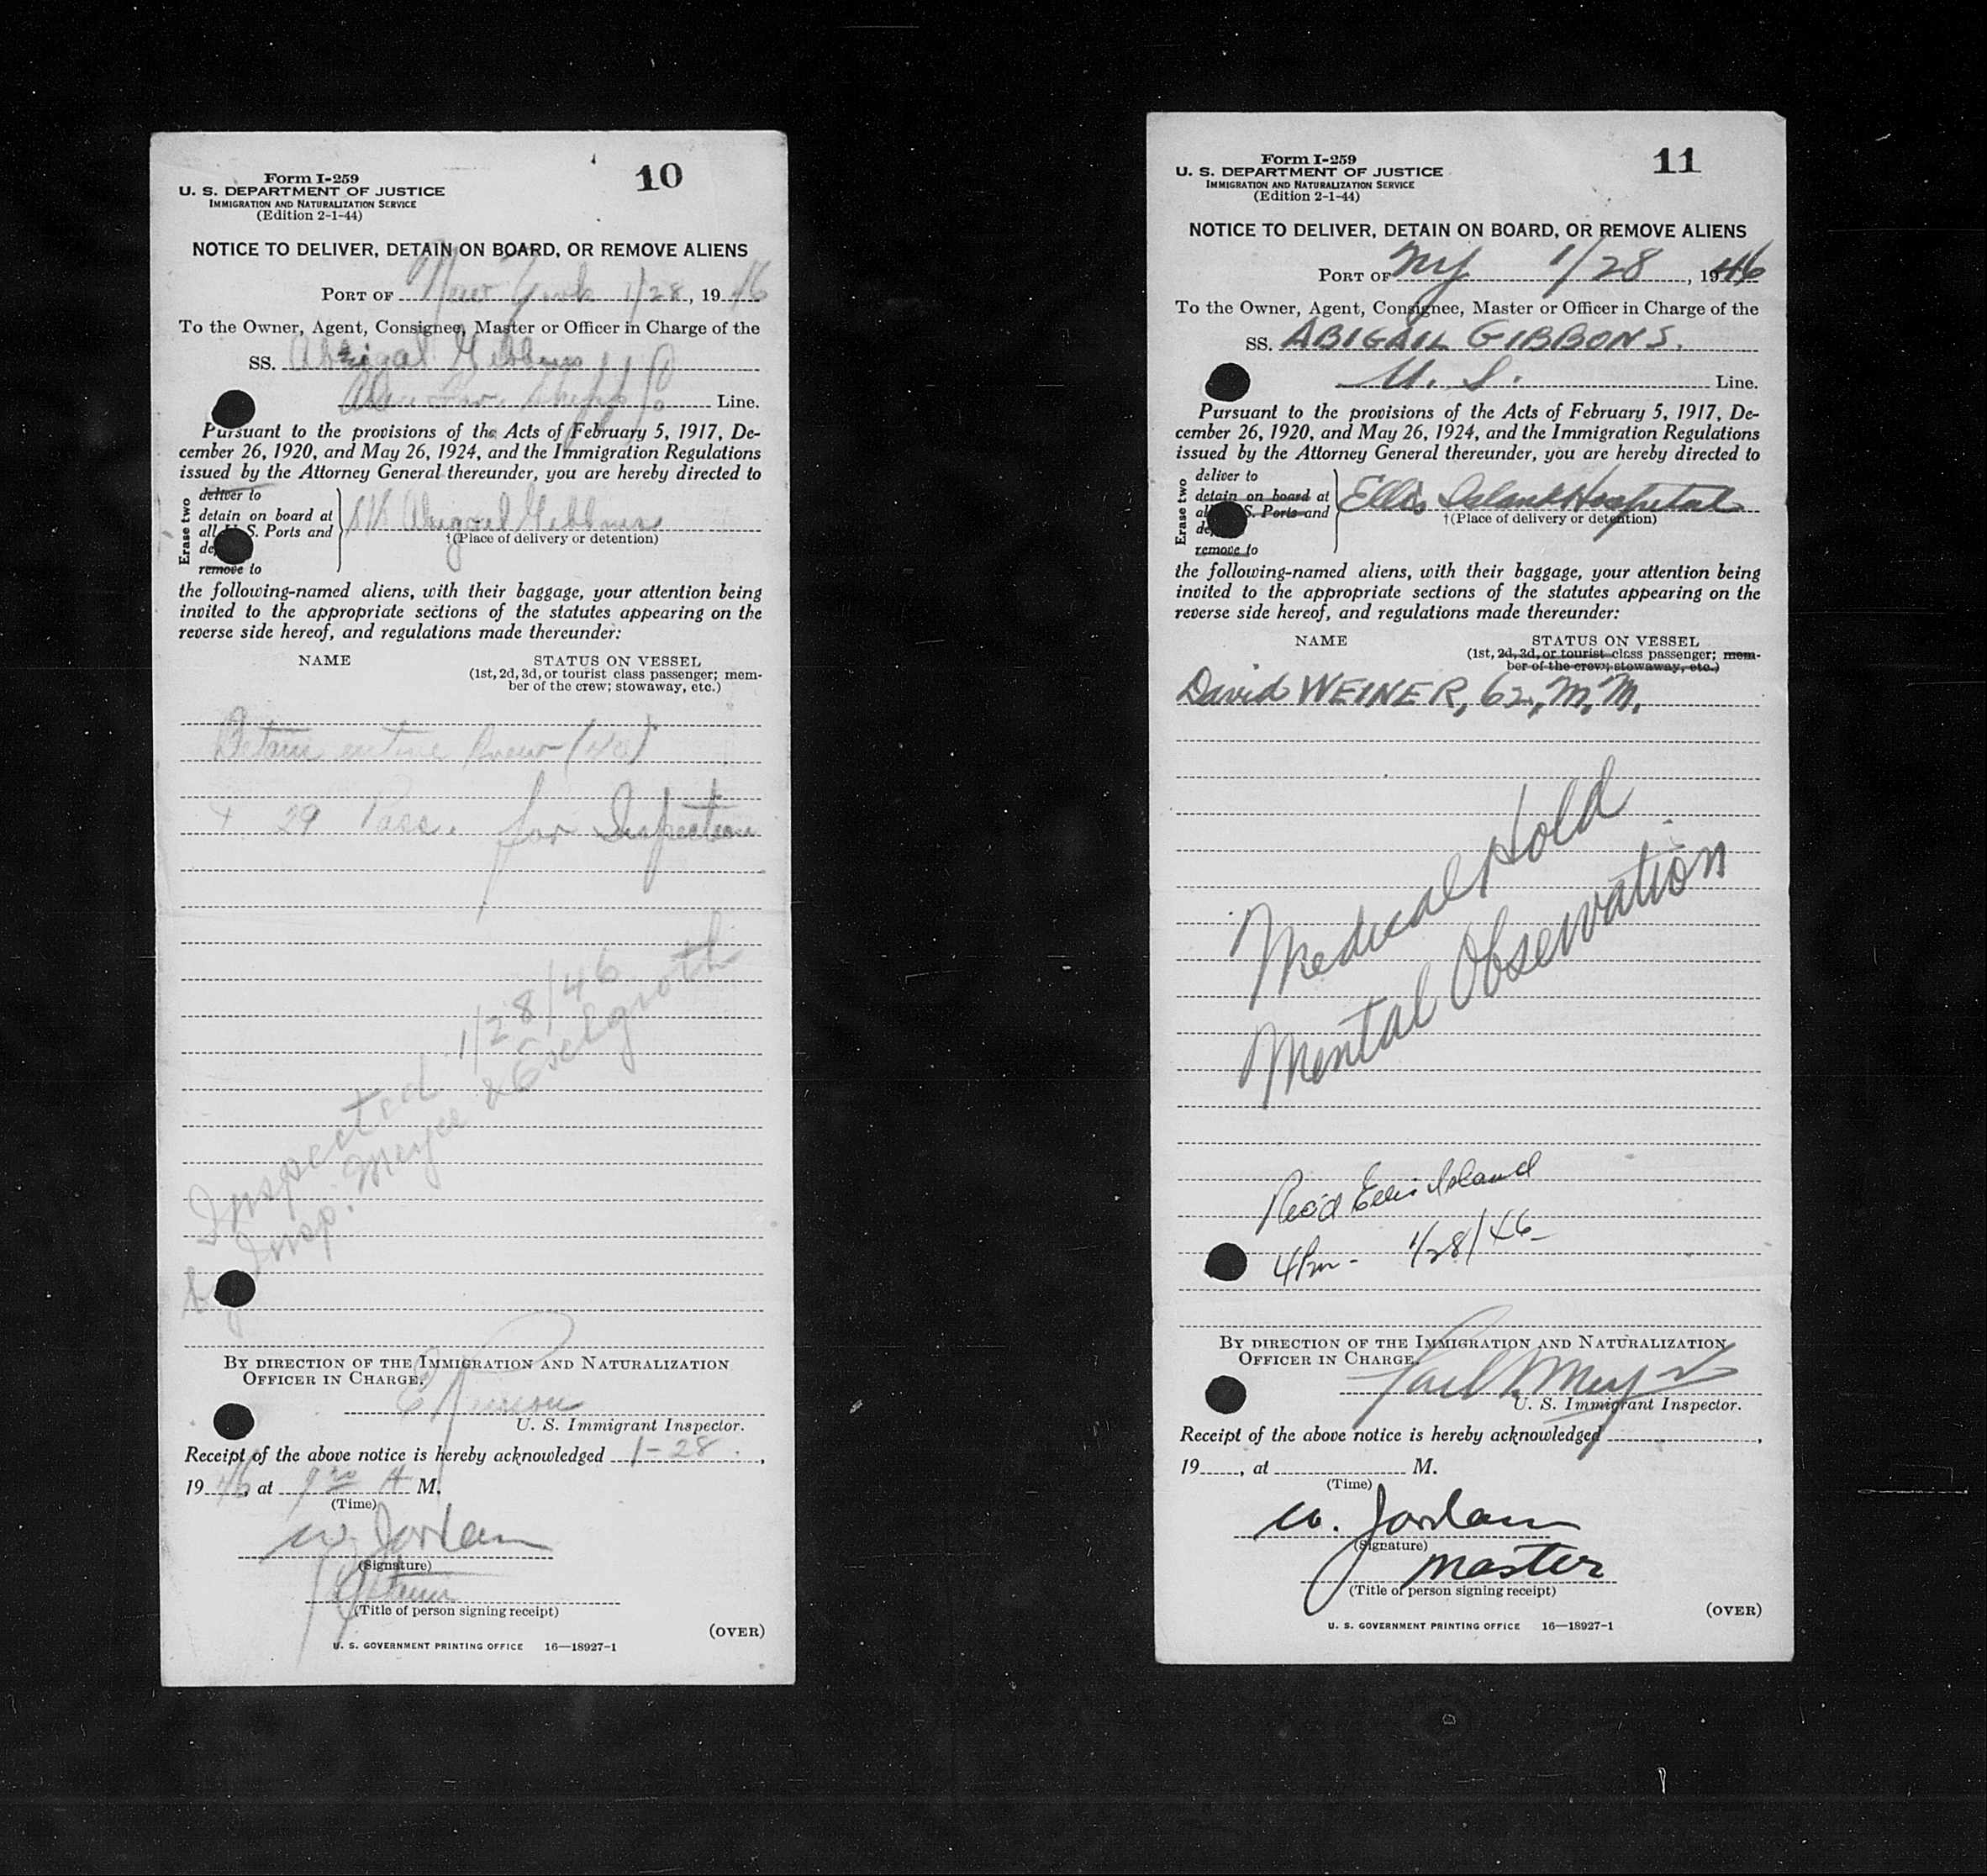 10
Form I-259
U. S. DEPARTMENT OF JUSTICE
IMMIGRATION AND NATURALIZATION SERVICE
(Edition 2-1-44)
NOTICE TO DELIVER, DETAIN ON BOARD, OR REMOVE ALIENS
PORT OF New York 1/28, 1946
To the Owner, Agent, Consignee, Master or Officer in Charge of the
SS. Abigal Gibbons
Line.
Pursuant to the provisions of the Acts of February 5, 1917, De-
cember 26, 1920, and May 26, 1924, and the Immigration Regulations
issued by the Attorney General thereunder, you are hereby directed to
Erase two
deliver to
detain on board at
all U. S. Ports and
remove to
Gibbons
†(Place of delivery or detention)
the following-named aliens, with their baggage, your attention being
invited to the appropriate sections of the statutes appearing on the
reverse side hereof, and regulations made thereunder:
NAME STATUS ON VESSEL
(1st, 2d, 3d, or tourist class passenger; mem-
ber of the crew; stowaway, etc.)
Detain entire crew
+ 29 Pass. for Inspection
Inspected 1/28/46
by Insp. Meyer & Eselgroth
BY DIRECTION OF THE IMMIGRATION AND NATURALIZATION
OFFICER IN CHARGE.
U. S. Immigrant Inspector.
Receipt of the above notice is hereby acknowledged 1-28,
1946, at A M.
(Time)
W. Jordan
(Signature)
(Title of person signing receipt)
(OVER)
U. S. GOVERNMENT PRINTING OFFICE 16—18927-1
11
Form I-259
U. S. DEPARTMENT OF JUSTICE
IMMIGRATION AND NATURALIZATION SERVICE
(Edition 2-1-44)
NOTICE TO DELIVER, DETAIN ON BOARD, OR REMOVE ALIENS
PORT OF NY 1/28, 1946
To the Owner, Agent, Consignee, Master or Officer in Charge of the
SS. ABIGAIL GIBBONS.
U. S. Line.
Pursuant to the provisions of the Acts of February 5, 1917, De-
cember 26, 1920, and May 26, 1924, and the Immigration Regulations
issued by the Attorney General thereunder, you are hereby directed to
Erase two
deliver to
detain on board at
S. Ports and
remove to
Ellis Island Hospital
†(Place of delivery or detention)
the following-named aliens, with their baggage, your attention being
invited to the appropriate sections of the statutes appearing on the
reverse side hereof, and regulations made thereunder:
NAME STATUS ON VESSEL
(1st, 2d, 3d, or tourist class passenger; mem-
ber of the crew; stowaway, etc.)
David WEINER, 62, M, M.
Medical Hold
Mental Observation
Rec'd Ellis Island
4 Pm - 1/28/46
BY DIRECTION OF THE IMMIGRATION AND NATURALIZATION
OFFICER IN CHARGE.
U. S. Immigrant Inspector.
Receipt of the above notice is hereby acknowledged ,
19 , at M.
(Time)
W. Jordan
(Signature)
master
(Title of person signing receipt)
(OVER)
U. S. GOVERNMENT PRINTING OFFICE 16—18927-1